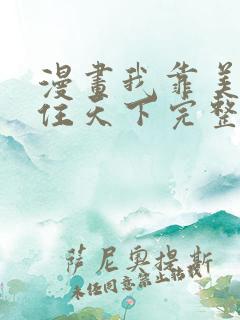 漫畫我靠美
住天下完整
萨尼奥提斯
未经同意禁止转载